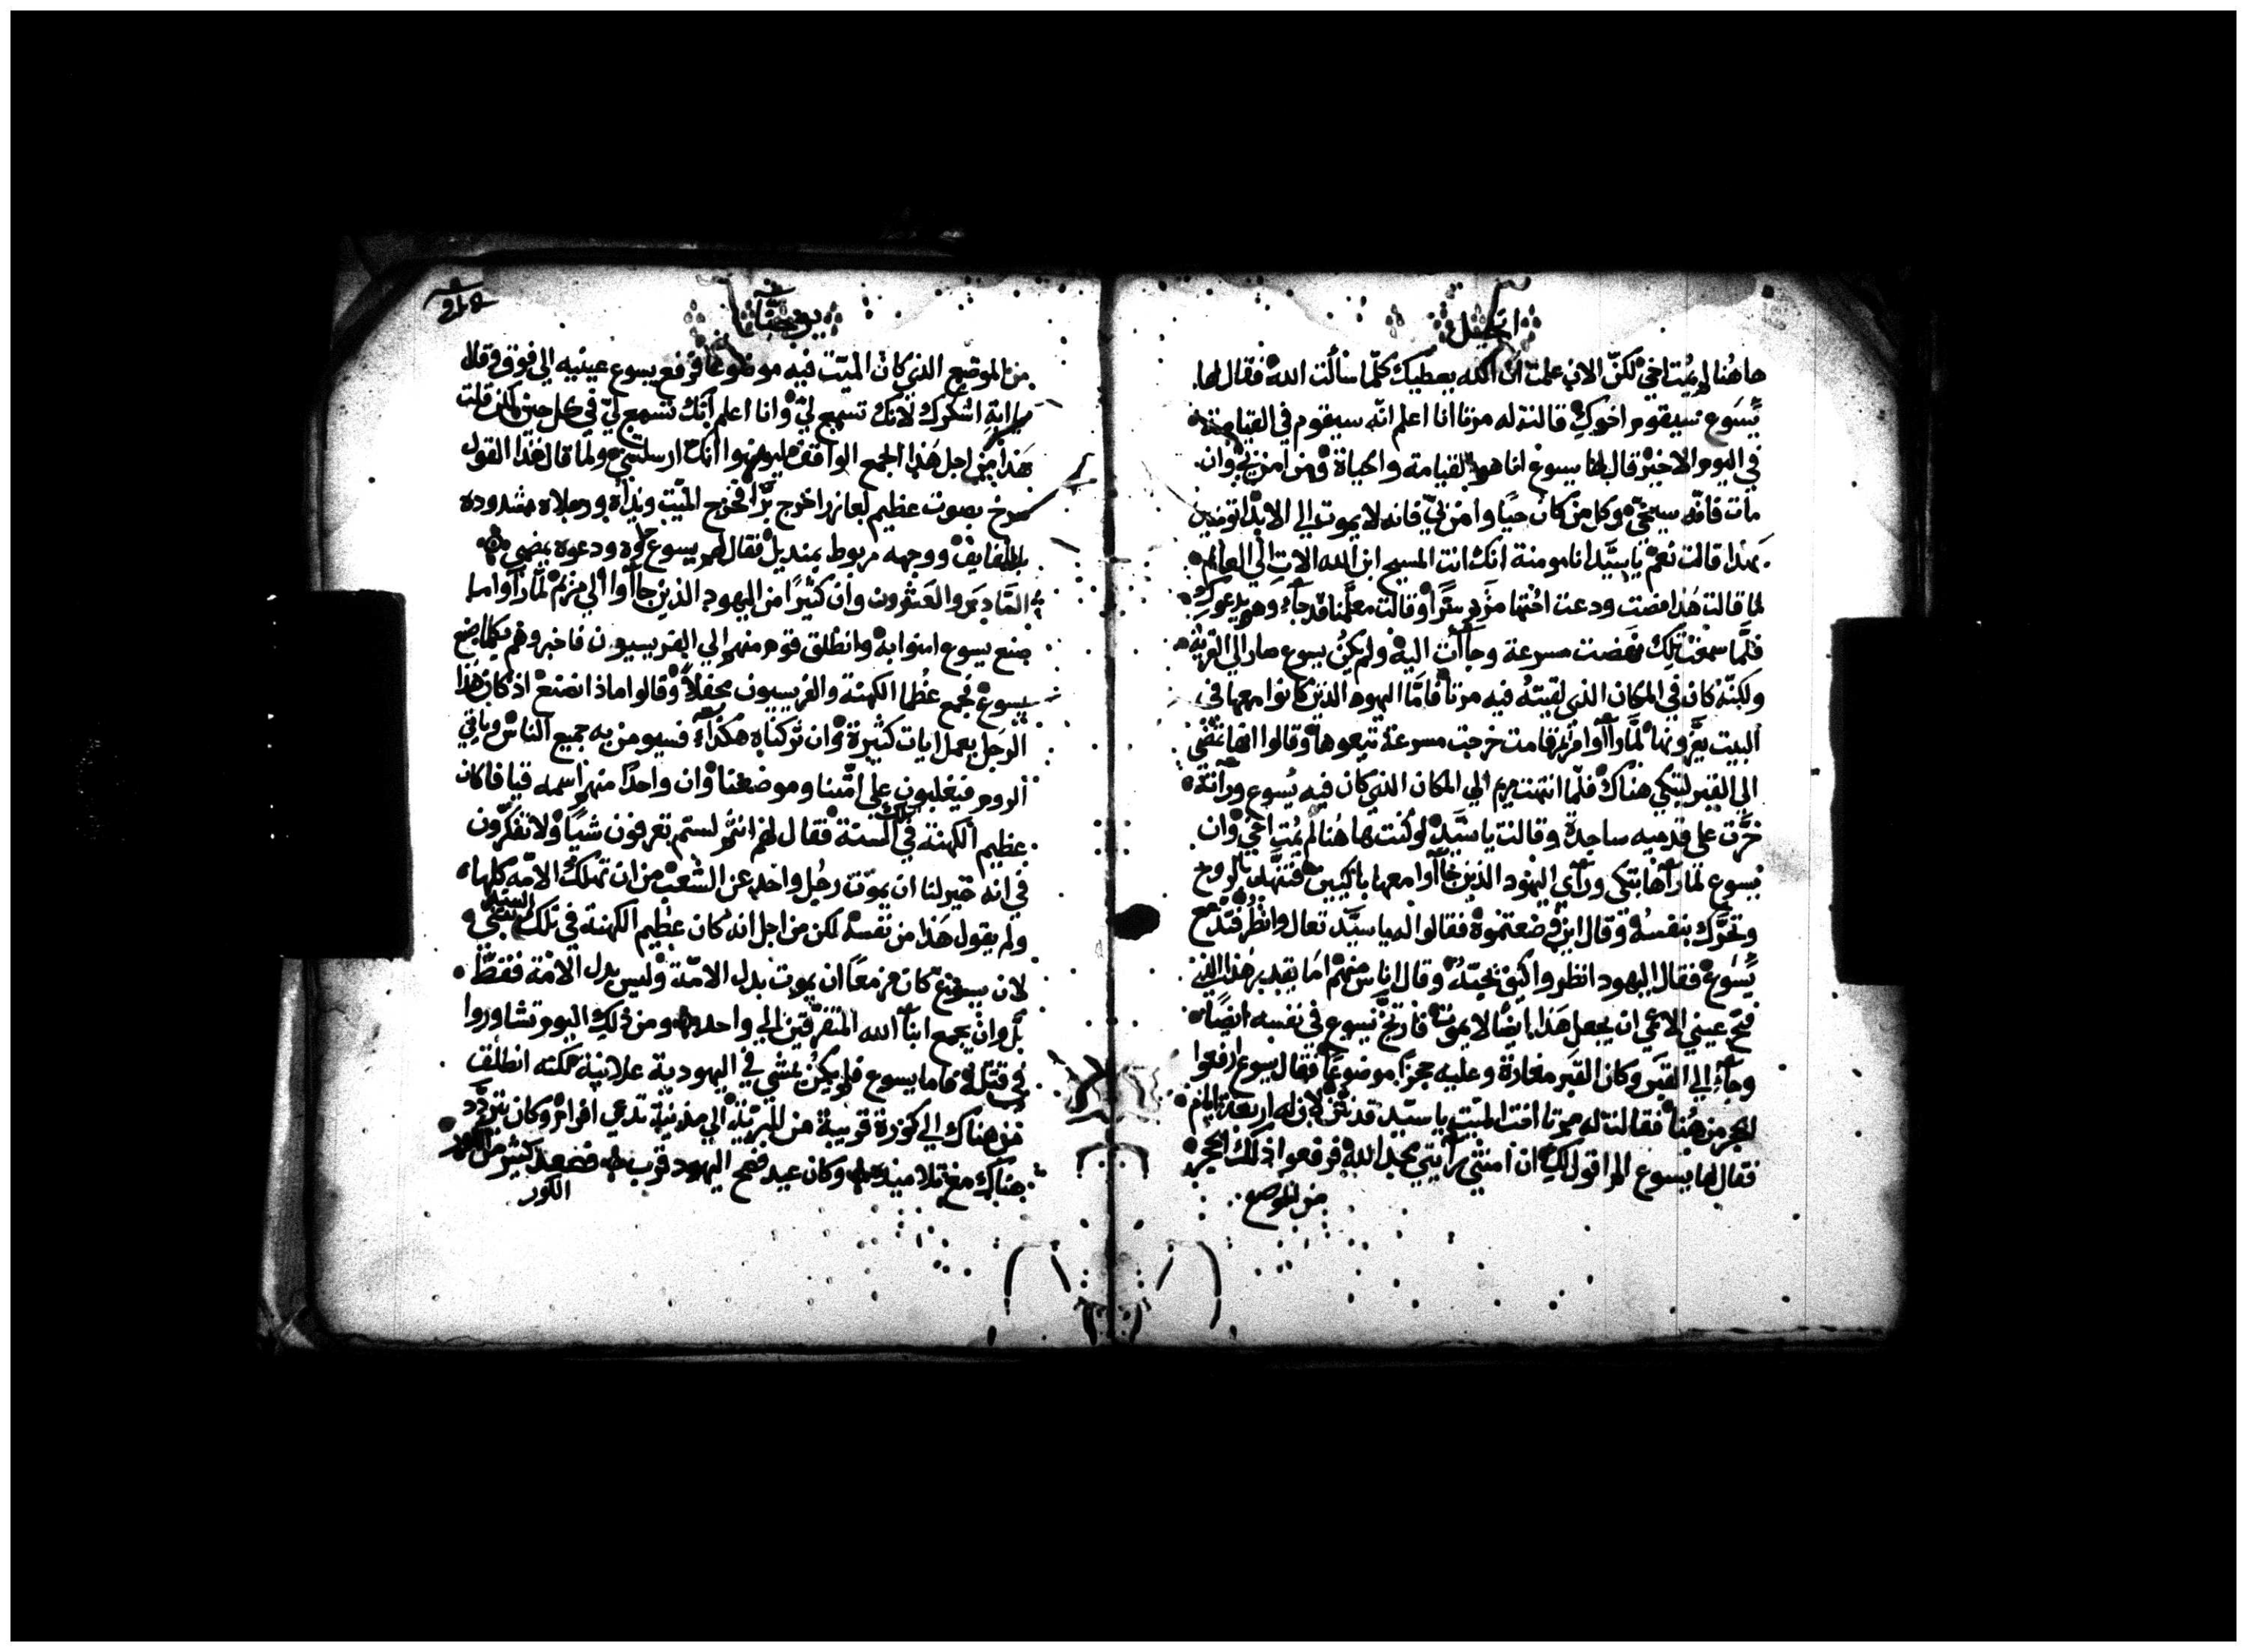 انجيل
هاهنا لم يمت اخي لكن الان علمت ان الله يعطيك كلما سألت الله فقال لها
يسوع سيقوم اخوك قالت له مرتا انا اعلم انه سيقوم في القيامة
في اليوم الاخير قال لها يسوع انا هو القيامة والحياة فمن امن بي وان
مات فانه سيحيى وكل من كان حيا وامن بي فانه لا يموت الي الابد اتومنين
بهذا قالت نعم يا سيد انا مومنة انك انت المسيح ابن الله الات الي العالم
لما قالت هذا مضت ودعت اختها مريم سرا وقالت معلمنا قد جاء وهو يدعوك
فلما سمعت تلك نهضت مسرعة وجاات اليه ولم يكن يسوع صار الي القرية
ولكنه كان في المكان الذي لقيته فيه مرتا فاما اليهود الذين كانوا معها في
البيت يعزونها لما راوا مريم قامت خرجت مسرعة تبعوها وقالوا انها تمضي
الي القبر لتبكي هناك فلما انتهت مريم الي المكان الذي كان فيه يسوع وراته
خرت على قدميه ساجدة وقالت يا سيد لو كنت هاهنا لم يمت اخي وان
يسوع لما راها تبكي وراي اليهود الذين جاأوا معها باكيين فتنهد بالروح
وتحرك بنفسه وقال اين وضعتموه فقالوا له يا سيد تعال وانظر فتدمع
يسوع فقال اليهود انظروا كيف يحبه وقال اناس منهم اما يقدر هذا الذي
فتح عيني الاعمي ان يجعل هذا ايضا لا يموت فارتج يسوع في نفسه ايضا
وجاء الي القبر وكان القبر مغارة وعليه حجرا موضوعا فقال يسوع ارفعوا
الحجر من هنا فقالت له مرتا اخت الميت يا سيد قد نتن لان له اربعة ايام
فقال لها يسوع الم اقول لك ان امنتي رأيتي مجد الله فرفعوا ذلك الحجر
من الموضع
يوحنا
من الموضع الذي كان الميت فيه موضوعا فرفع يسوع عينيه الي فوق وقال
يا ابة اشكرك لانك تسمع لي وانا اعلم انك تسمع لي في كل حين لكن قلت
هذا من اجل هذا الجمع الواقف ليومنوا انك ارسلتني ولما قال هذا القول
صرخ بصوت عظيم لعازر اخرج برا فخرج الميت ويداه ورجلاه مشدوده
بلفايف ووجهه مربوط بمنديل فقال لهم يسوع حلوه ودعوه يمضي
السادس والعشرون وان كثيرا من اليهود الذين جاأوا الي مريم لما رأوا ما
صنع يسوع امنوا به وانطلق قوم منهم الي الفريسيون فاخبروهم بكلما صنع
يسوع فجمع عظما الكهنة والفريسيون محفلا وقالوا ماذا نصنع اذ كان هذا
الرجل يعمل ايات كثيرة وان تركناه هكذا فسيومن به جميع الناس وياتي
الروم فيغلبون على امتنا وموضعنا وان واحدا منهم اسمه قيافا كان
عظيم الكهنة في تلك السنة فقال لهم انتم لستم تعرفون شيا ولا تفكرون
في انه خير لنا ان يموت رجل واحد عن الشعب من ان تهلك الامه كلها
ولم يقول هذا من نفسه لكن من اجل انه كان عظيم الكهنة في تلك السنة تنبي
لان يسوع كان مزمعا ان يموت بدل الامة وليس بدل الامة فقط
بل وان يجمع ابنا الله المتفرقين الي واحد ومن ذلك اليوم تشاوروا
في قتله فاما يسوع فلم يكن يمشي في اليهودية علانية لكنه انطلق
من هناك الي كورة قريبة من البرية الي مدينة تدعي افرام وكان يتردد
هناك مع تلاميذه وكان عيد فصح اليهود قرب فصعد كثير من
الكور